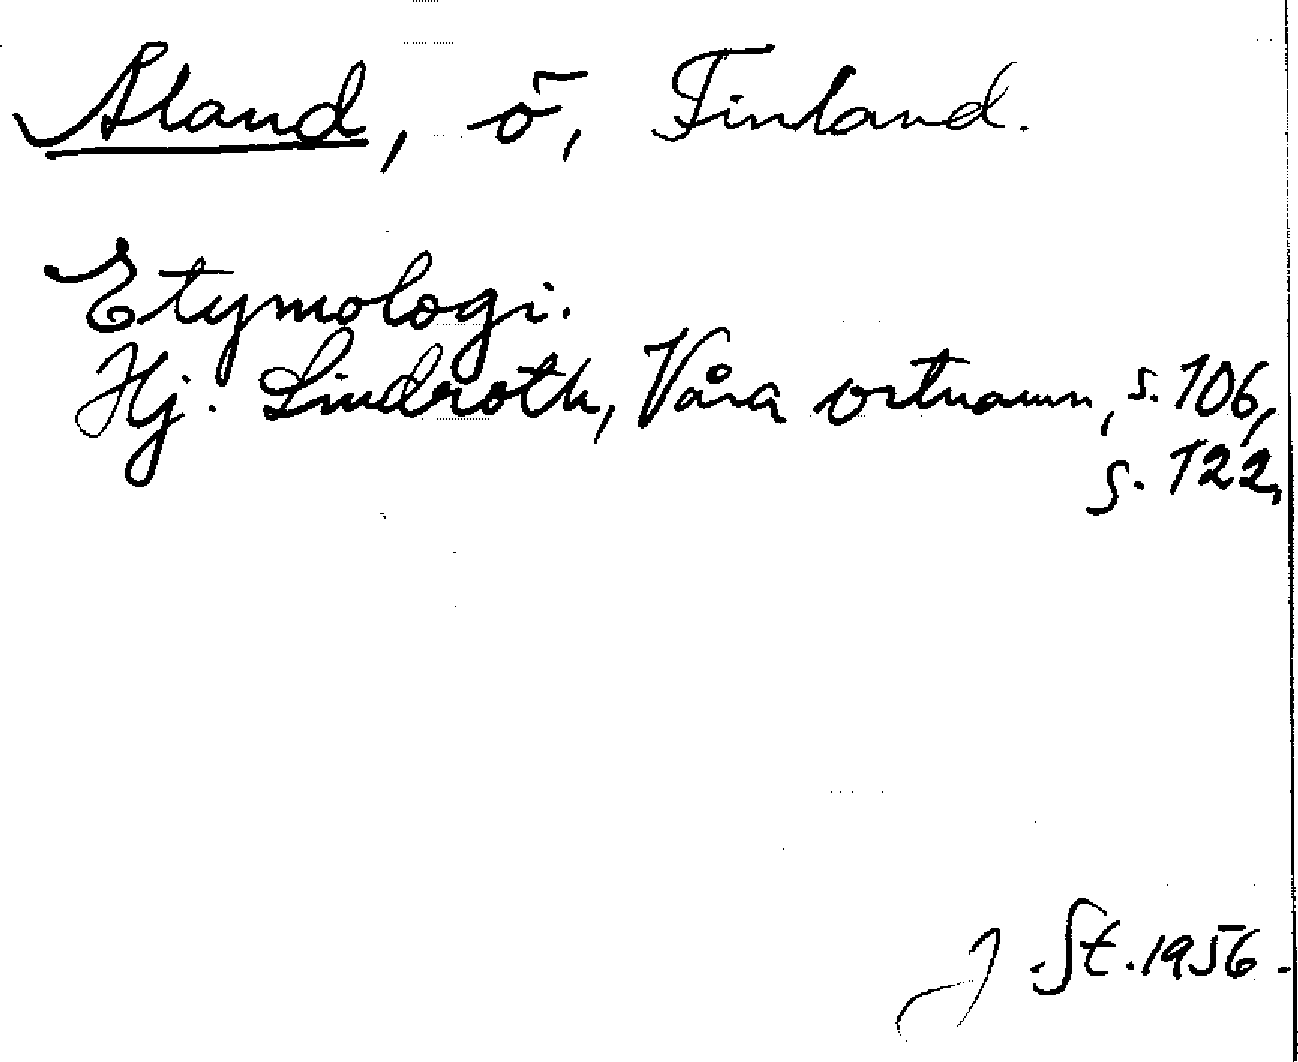 Åland, ö, Finland.
Etymologi.
Hj. Lindroth, Våra ortnamn, s. 106,
s. 122,
J. St. 1956.